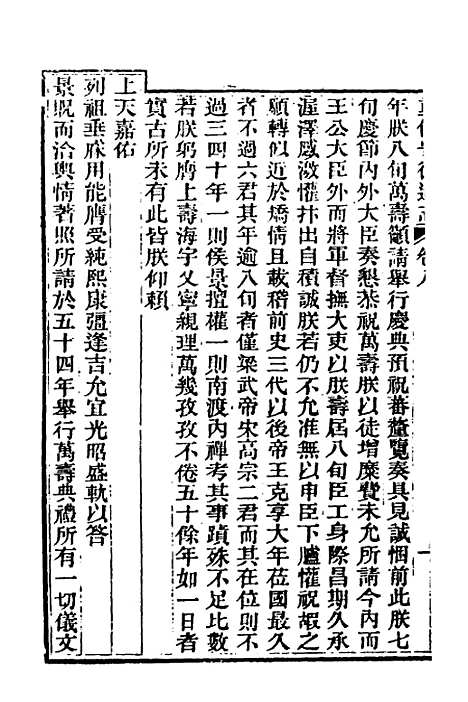 卷八
年朕八旬萬壽籲請舉行慶典預祝蕃釐覽奏具見誠悃前此朕七
旬慶節內外大臣奏懇恭祝萬壽朕以徒增糜費未允所請今內而
王公大臣外而將軍督撫大吏以朕壽屆八旬臣工身際昌期久承
渥澤感激懽抃出自積誠朕若仍不允准無以申臣下臚懽祝嘏之
願轉似近於矯情且載稽前史三代以後帝王克享大年莅國最久
者不過六君其年逾八旬者僅梁武帝宋高宗二君而其在位則不
過三四十年一則侯景擅權一則南渡內禪考其事蹟殊不足比數
若朕躬膺上壽海宇乂寧親理萬幾孜孜不倦五十餘年如一日者
實古所未有此皆朕仰賴
上天嘉佑
列祖垂庥用能膺受純熙康彊逢吉允宜光昭盛軌以答
景貺而洽輿情著照所請於五十四年舉行萬壽典禮所有一切儀文